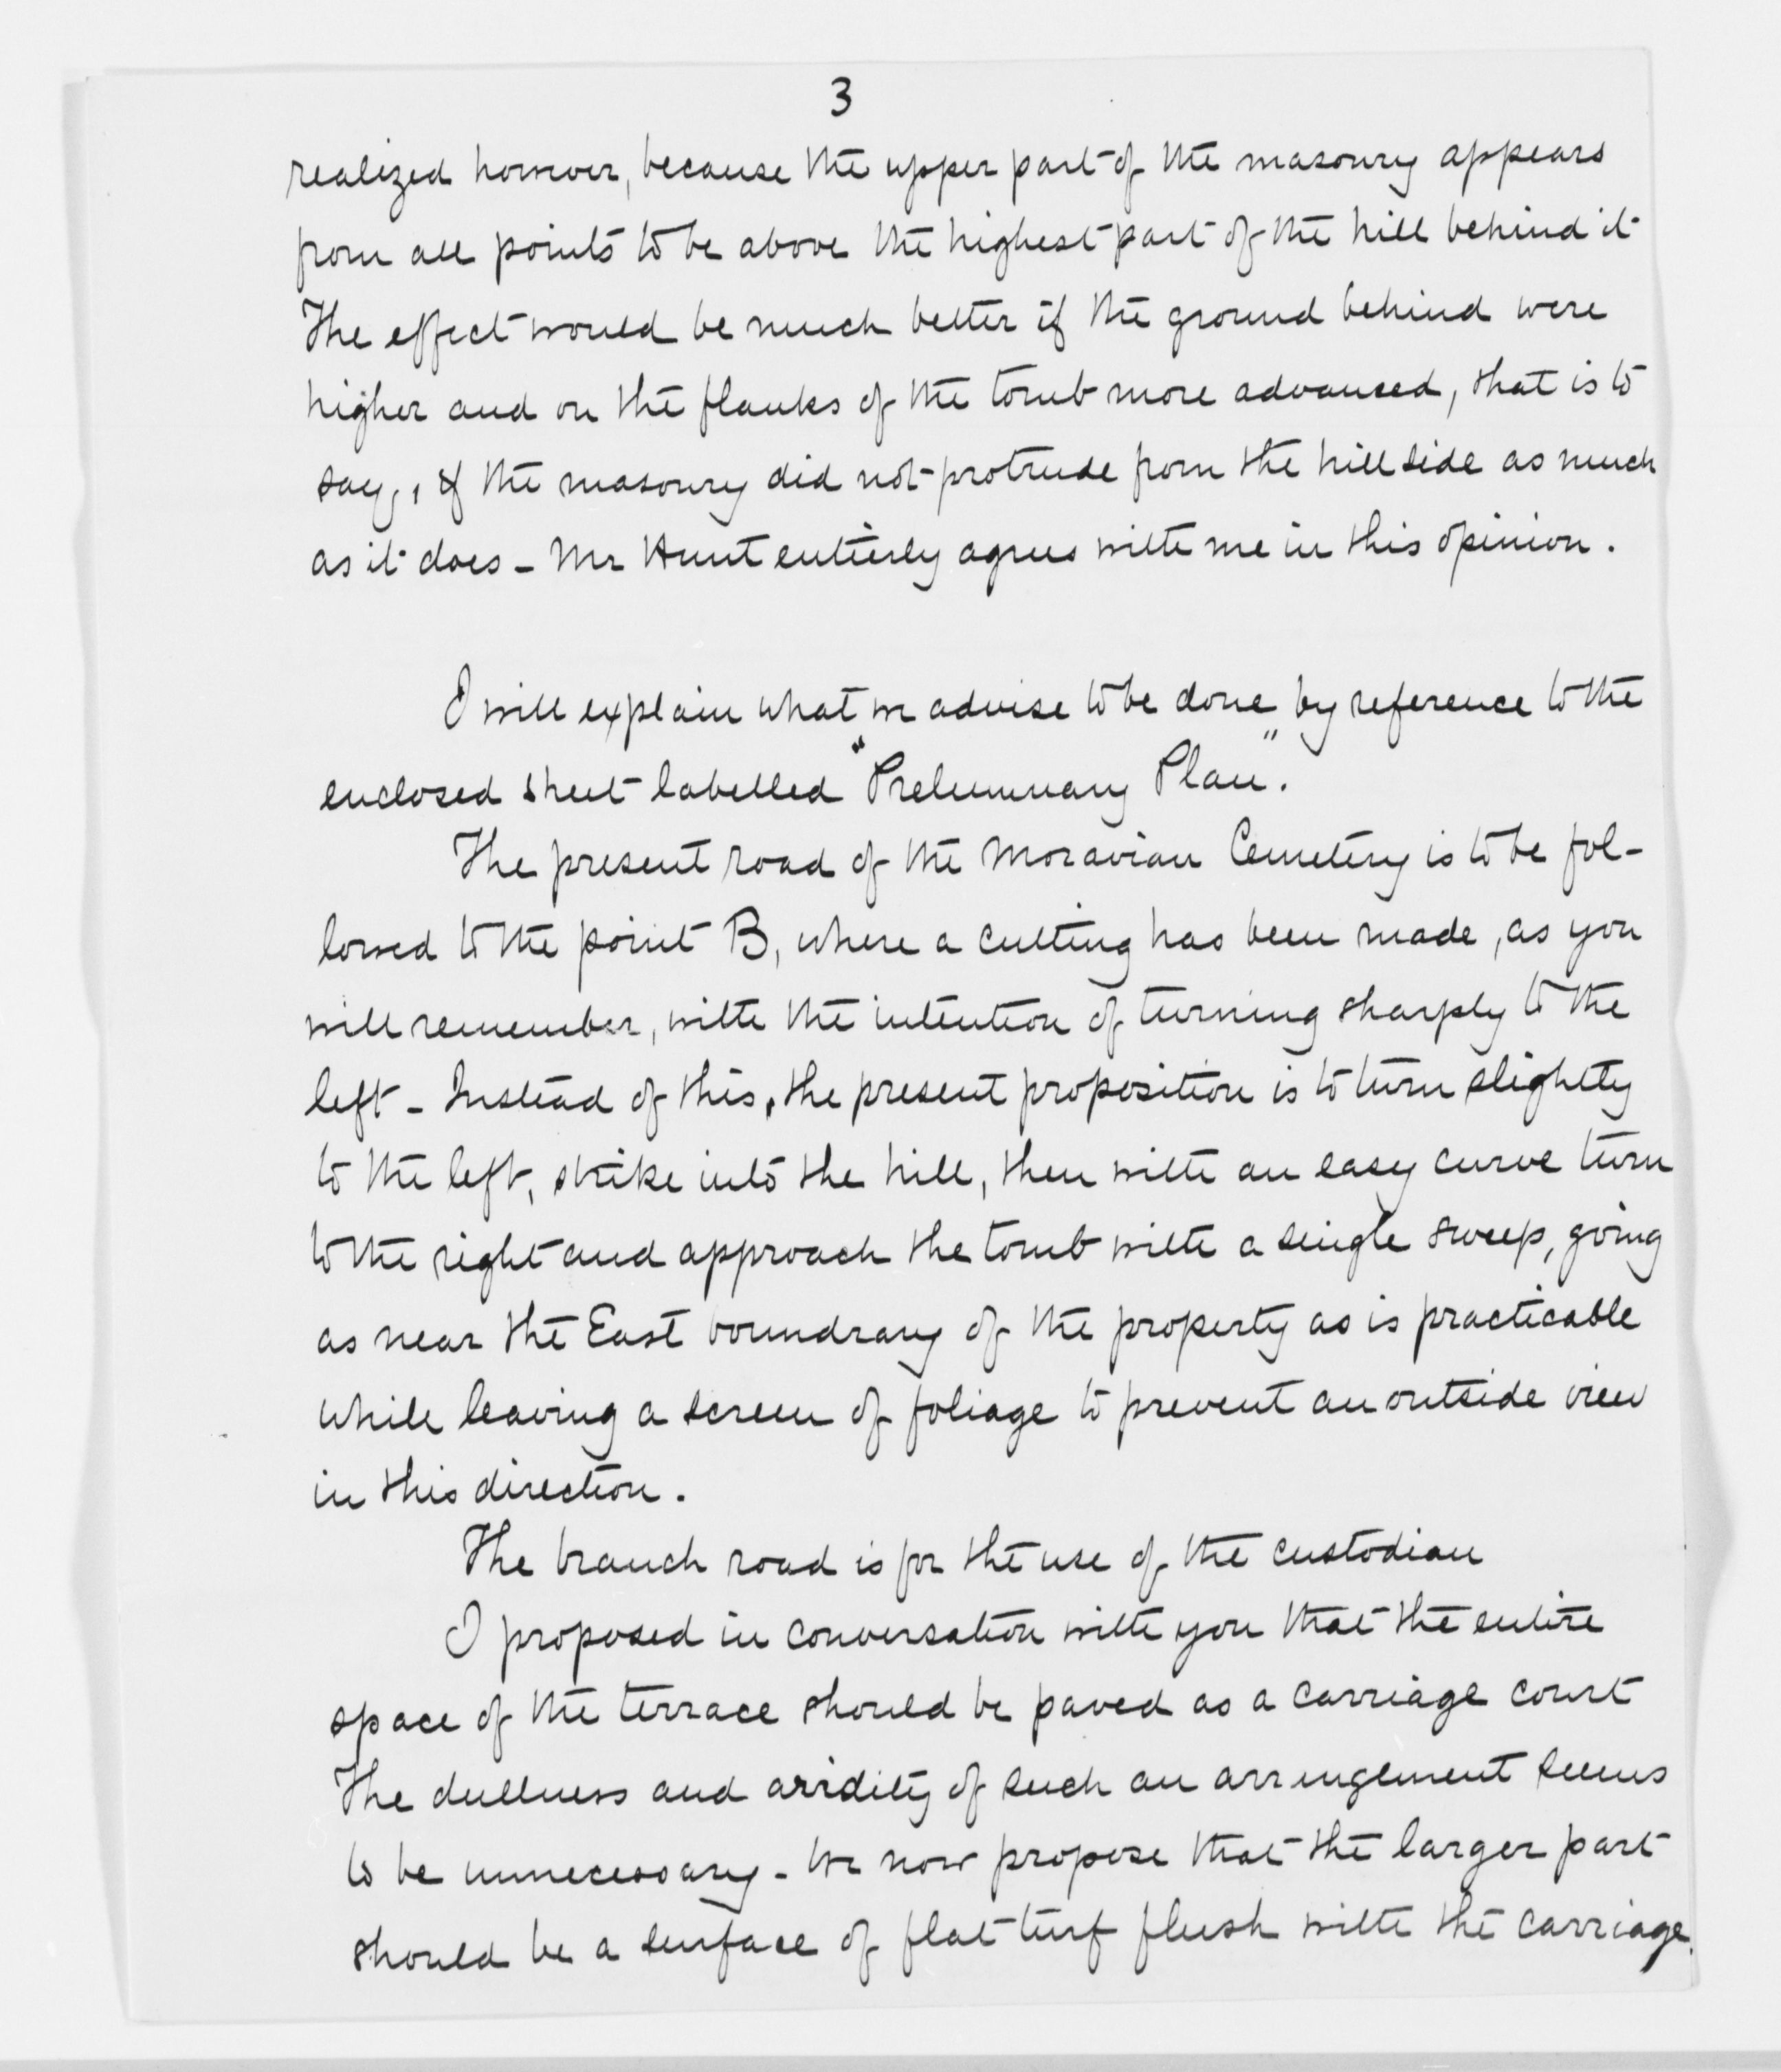 3
realized however, because the upper part of the masonry appears
from all points to be above the highest part of the hill behind it
The effect would be much better if the ground behind were
higher and on the flanks of the tomb more advanced, that is to
say, if the masonry did not protrude from the hill side as much
as it does - Mr Hunt entirely agrees with me in this opinion.
I will explain what we advise to be done by reference to the
enclosed sheet labelled "Preliminary Plan".
The present road of the Moravian Cemetery is to be fol-
lowed to the point B, where a cutting has been made, as you
will remember, with the intention of turning sharply to the
left - Instead of this, the present proposition is to turn slightly
to the left, strike into the hill, then with an easy curve turn
to the right and approach the tomb with a single sweep, going
as near the East boundrary of the property as is practicable
while leaving a screen of foliage to prevent an outside view
in this direction.
The branch road is for the use of the custodian
I proposed in conversation with you that the entire
space of the terrace should be paved as a carriage court
The dullness and aridity of such an arrangement seems
to be unnecessary - We now propose that the larger part
should be a surface of flat turf flush with the carriage